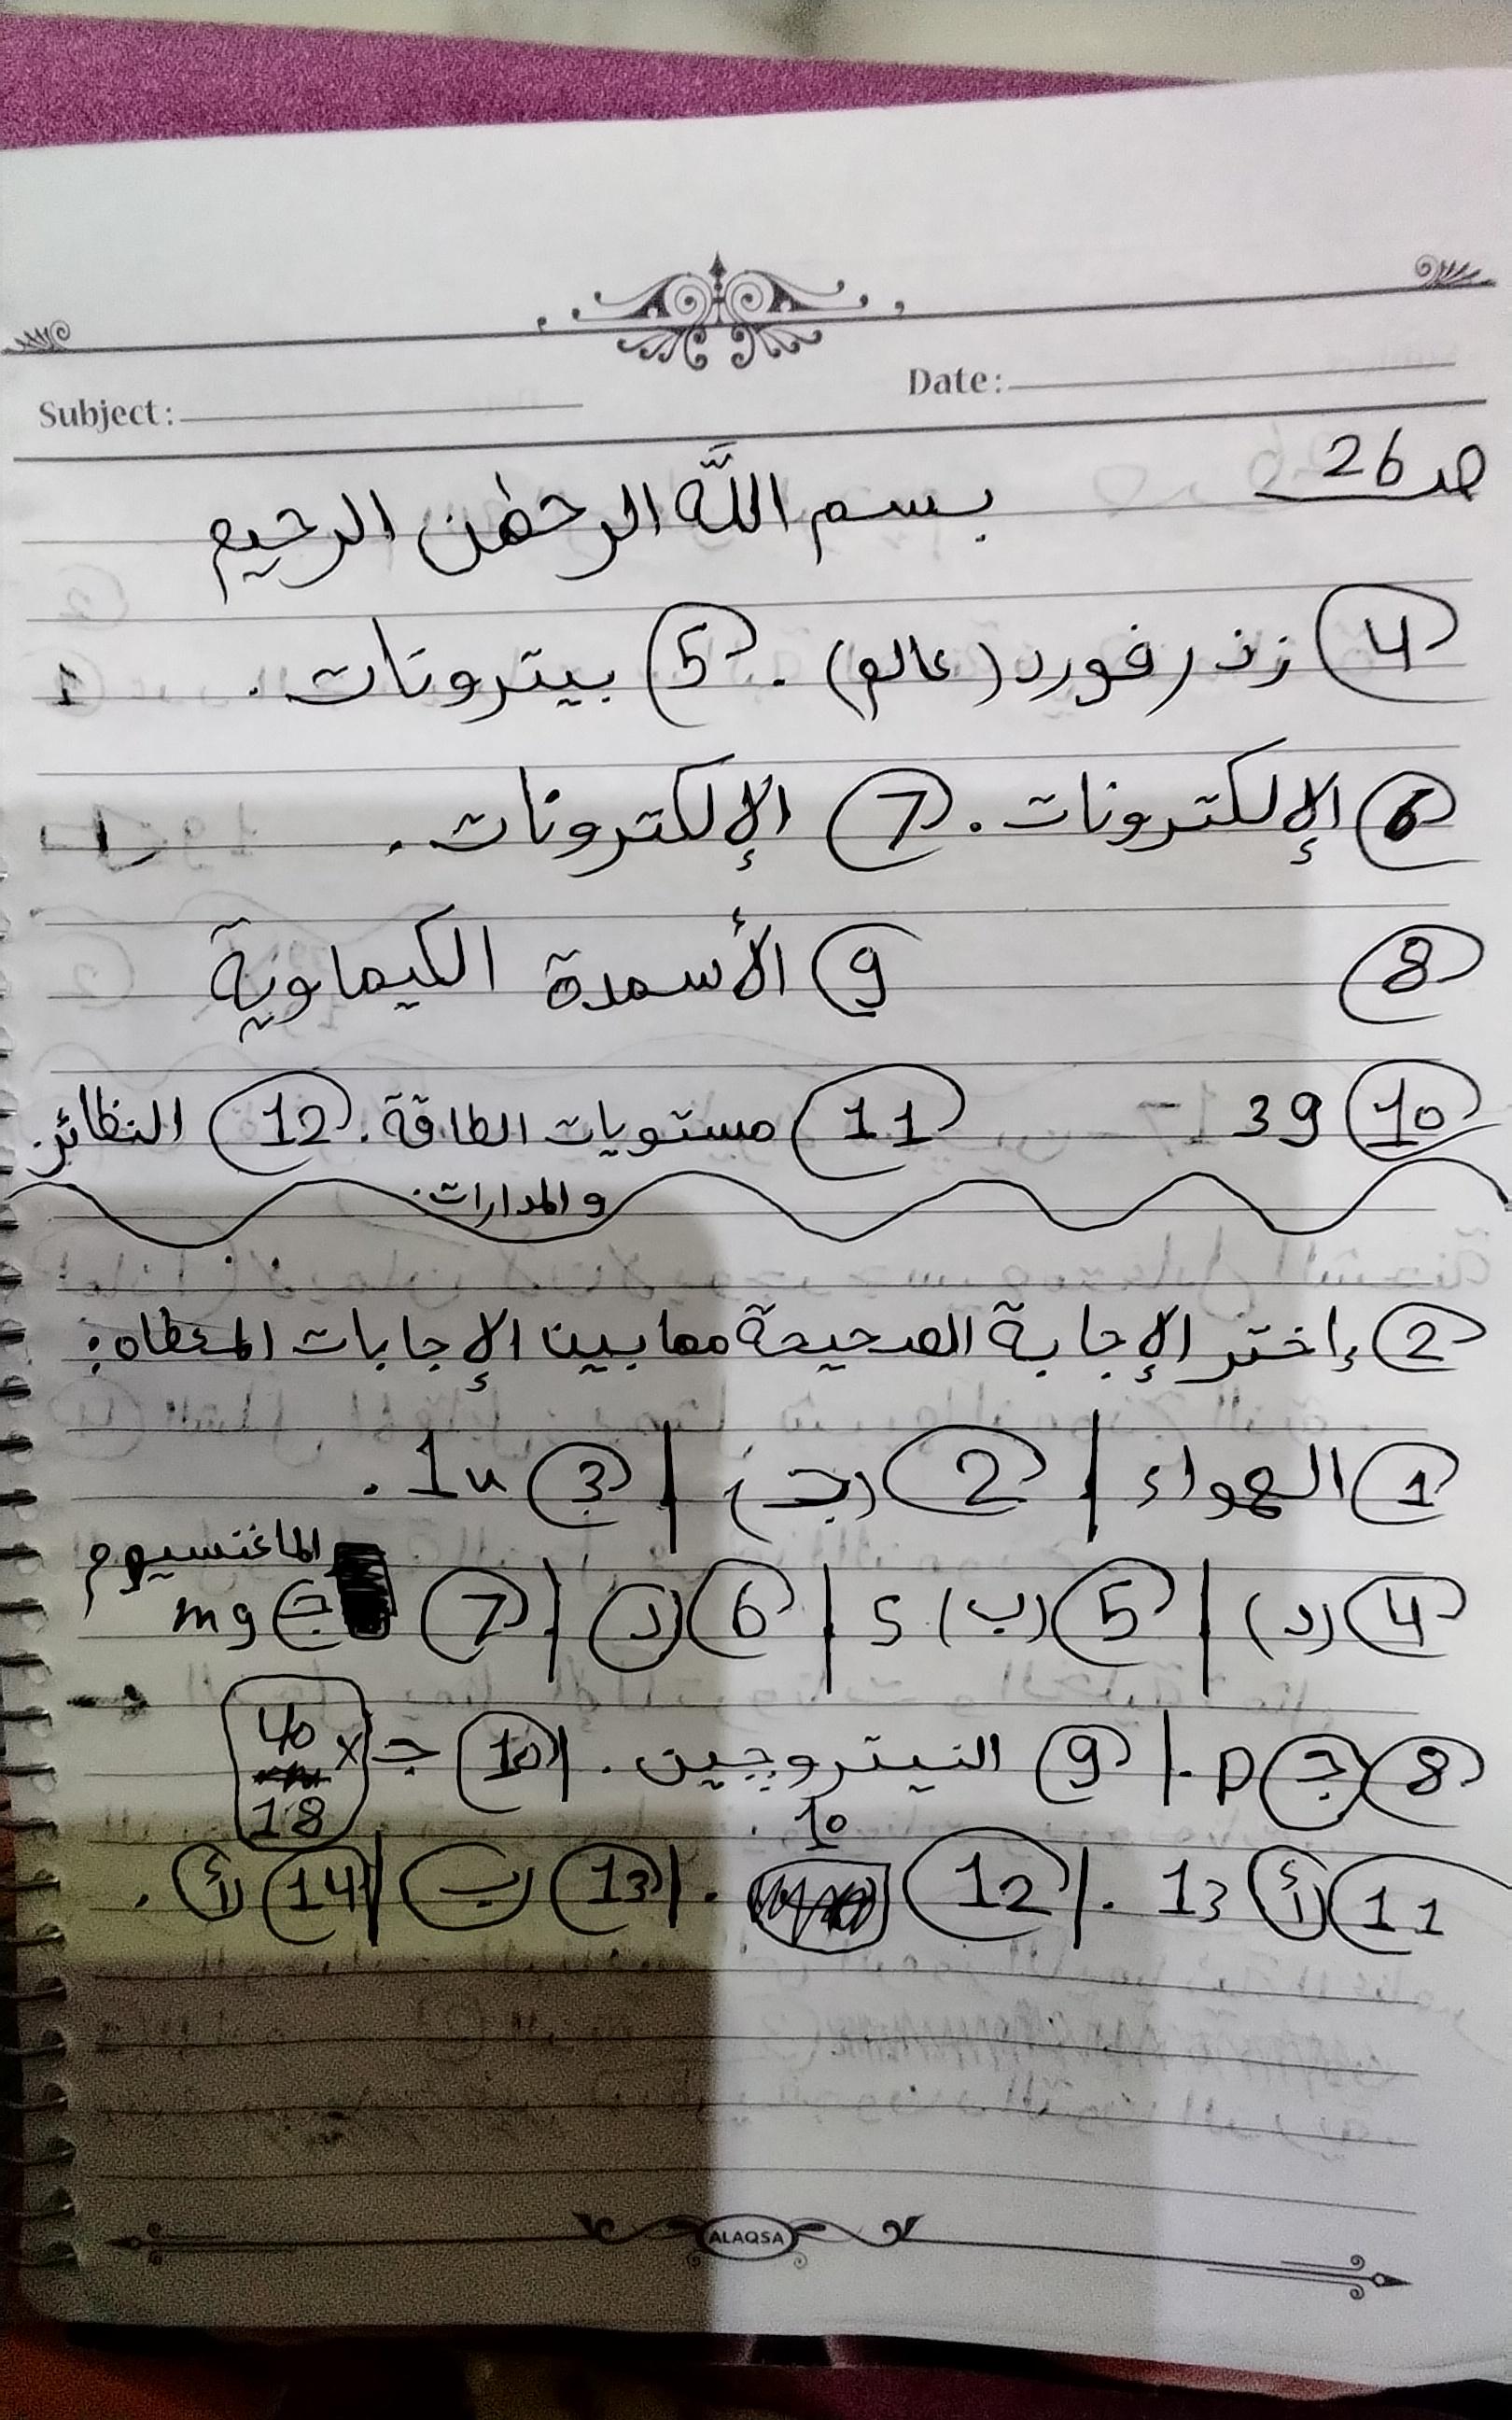 Subject: Date:
صـ 26
بسم اللَّه الرحمٰن الرحيم
4 رذرفورد (عالم) . 5 بيترونات .
6 الإلكترونات . 7 الإلكترونات .
8 9 الأسمدة الكيماوية
10 39 11 مستويات الطاقة . 12 النظائر .
والمدارات .
2 إختر الإجابة الصحيحة مما بين الإجابات المعطاه :
1 الهواء | 2 (جـ) | 3 1u .
4 (د) | 5 (ب) S | 6 د | 7 جـ mg الماغنسيوم
8 جـ P . | 9 النيتروجين . | 10 جـ X 40 18
11 أ 13 . | 12 10 . | 13 ب | 14 أ .
ALAQSA